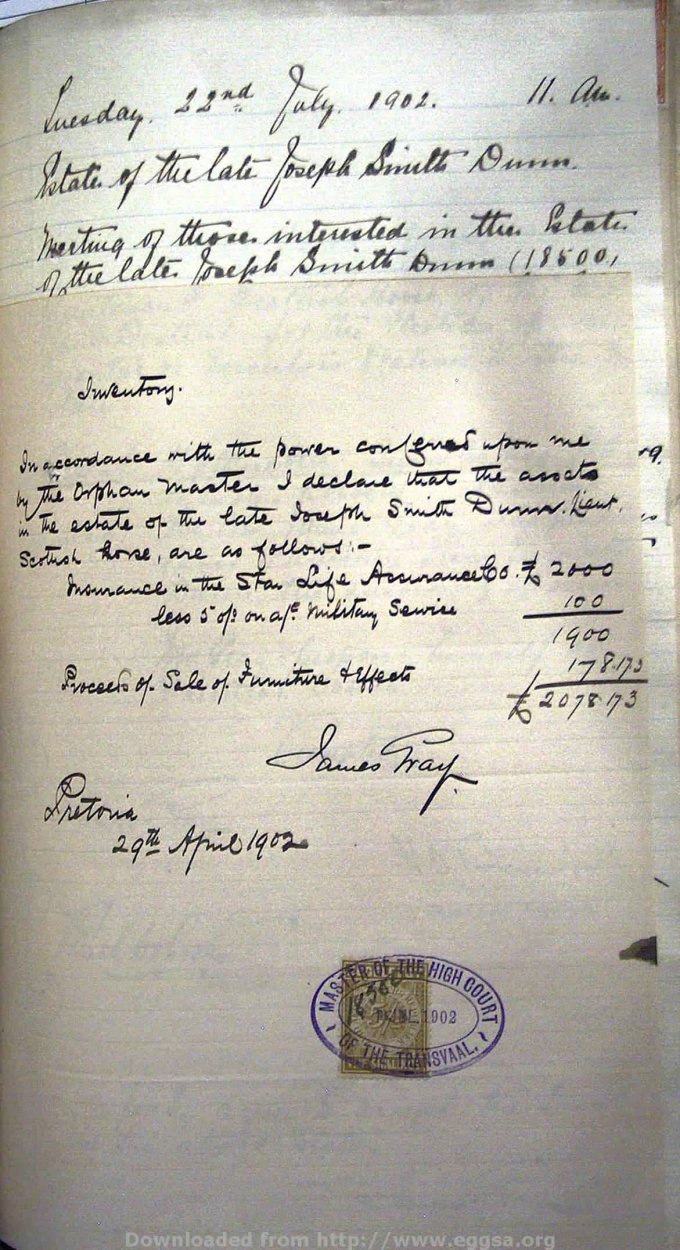 Tuesday. 22nd July. 1902. 11. Am.
Estate of the late Joseph Smith Dunn.
Meeting of those interested in the Estate
of the late Joseph Smith Dunn (18500,
Inventory.
In accordance with the power conferred upon me
by the Orphan Master I declare that the assets
in the estate of the late Joseph Smith Dunn. Lieut.
Scottish Horse, are as follows:-
Insurance in the Star Life Assurance Co. £ 2000
less 5 o/o on a/c Military Service 100
1900
Proceeds of Sale of Furniture & Effects 178.17.3
£ 2078.17.3
James Gray.
Pretoria
29th April 1902
MASTER OF THE HIGH COURT
18500
JUNE 1902
OF THE TRANSVAAL.
Downloaded from http://www.eggsa.org